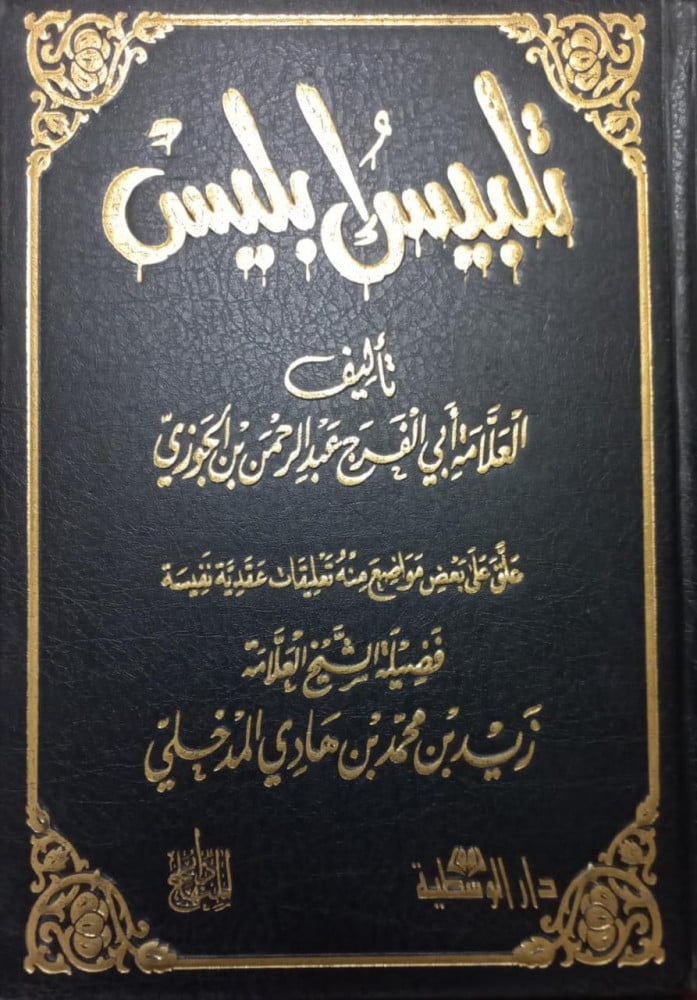 تلبيسُ إبليسَ
تأليف
العلَّامة أبي الفَرَج عَبد الرحمن بن الجَوزيّ
علَّق عَلى بَعض مَواضِعَ مِنهُ تَعليقات عَقديَّة نَفيسَة
فَضيلة الشَّيخ العلَّامة
زَيد بن محمَّد بن هَادي المَدخليّ
دار الوسطية